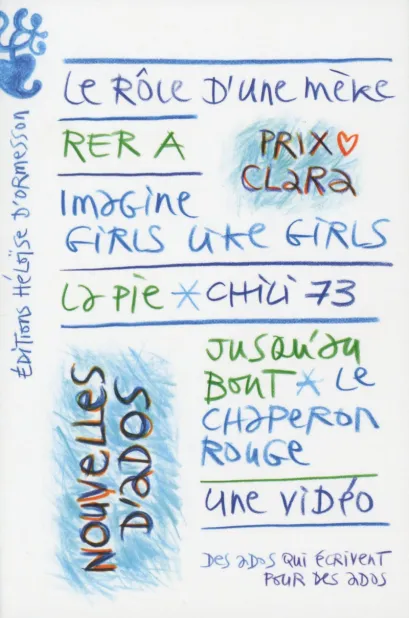 Le Rôle D'une mère
RER A
PRIX
CLARA
Imagine
GIRLS Like GIRLS
La Pie * CHILI 73
JUSQU'au
BOUT * Le
CHAPERON
ROUGE
une vidéo
NOUVELLES
D'ADOS
Des ados qui écrivent
pour des ados
Éditions Héloïse d'Ormesson